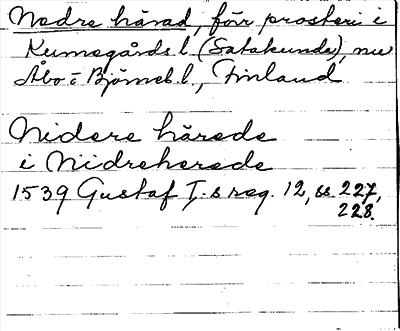 Nedre härad, förr prosteri i
Kumogårds l. (Satakunda), nu
Åbo-Björneb. l., Finland
Nidere härede
i Nidreherede
1539 Gustaf I:s reg. 12, ss. 227,
228.